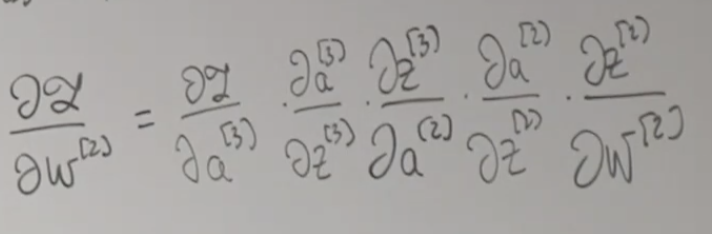 ∂ℒ/∂w^[2] = ∂ℒ/∂a^[3] · ∂a^[3]/∂z^[3] · ∂z^[3]/∂a^[2] · ∂a^[2]/∂z^[2] · ∂z^[2]/∂W^[2]